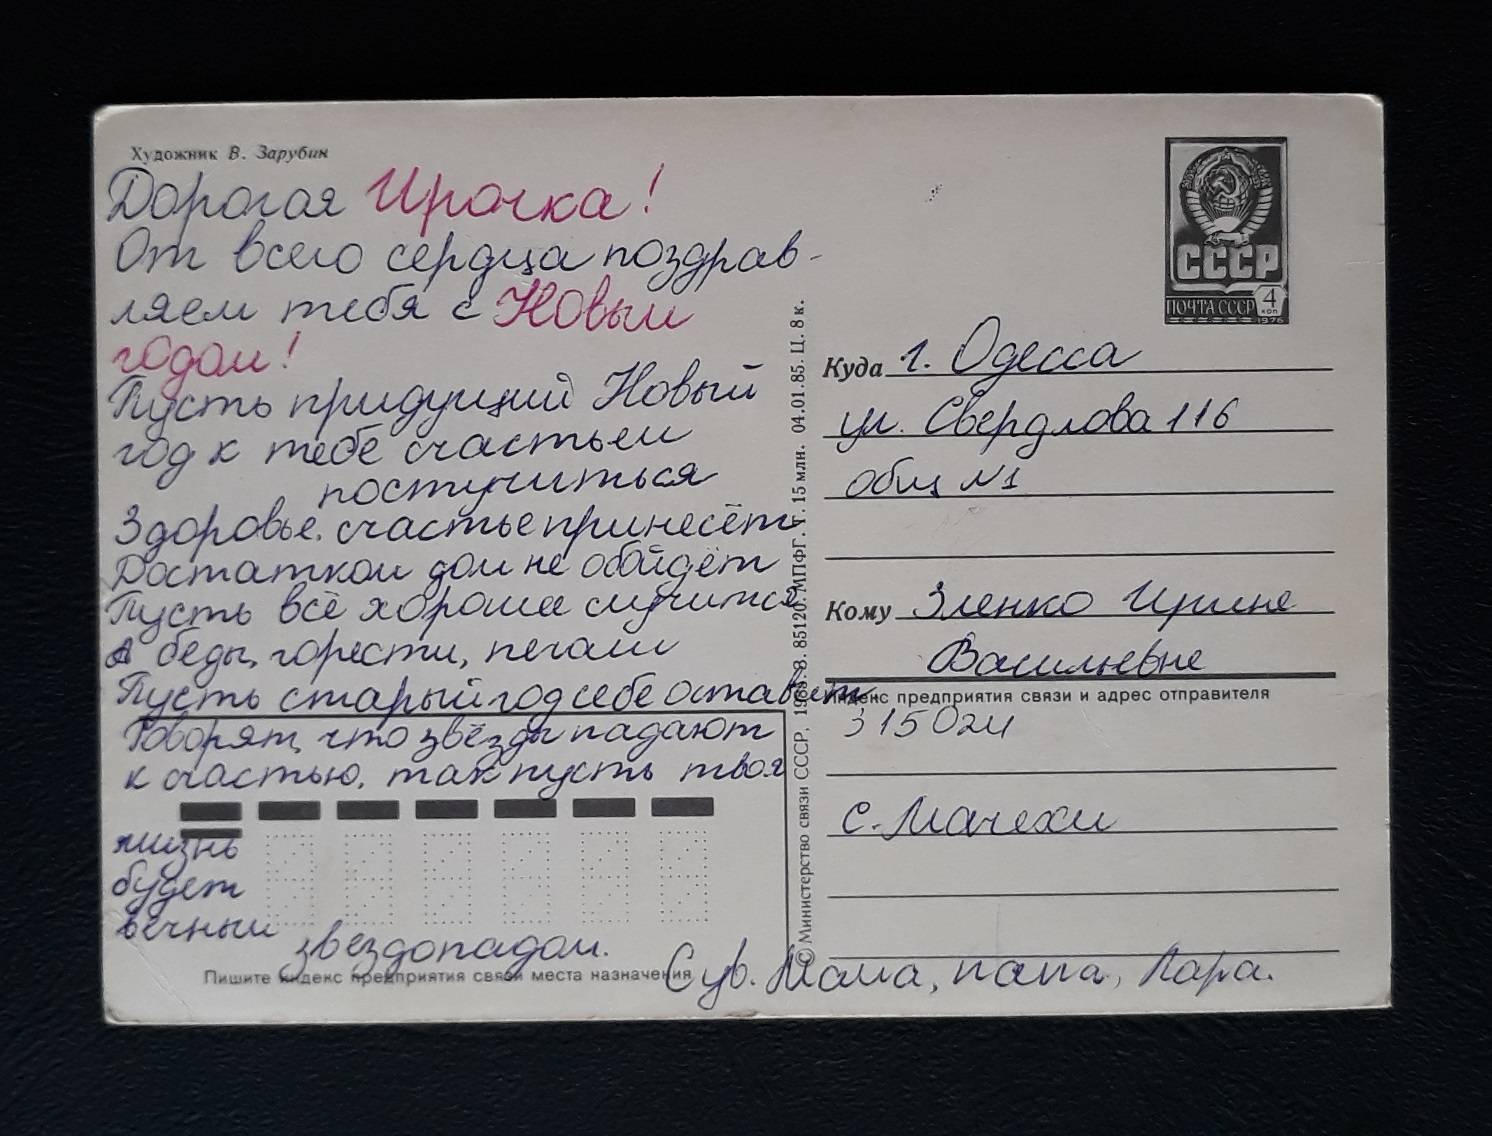 Художник В. Зарубин
Дорогая Ирочка!
От всего сердца поздрав-
ляем тебя с Новым
годом!
Пусть придущий Новый
год к тебе счастьем
постучиться
Здоровье, счастье принесёт
Достатком дом не обойдёт
Пусть всё хорошее случится
А беды, горести, печали
Пусть старый год себе оставит
Говорят, что звёзды падают
к счастью, так пусть твоя
жизнь
будет
вечным
звездопадом.
Пишите индекс предприятия связи места назначения
Цел. Мама, папа, Лара.
© Министерство связи СССР, 1985. З. 85120. МПФГ. Т. 15 млн. 04.01.85. Ц. 8 к.
СССР
ПОЧТА СССР 4
коп
1976
Куда г. Одесса
ул. Свердлова 116
общ N1
Кому Зленко Ирине
Васильевне
Индекс предприятия связи и адрес отправителя
315024
с. Мачехи